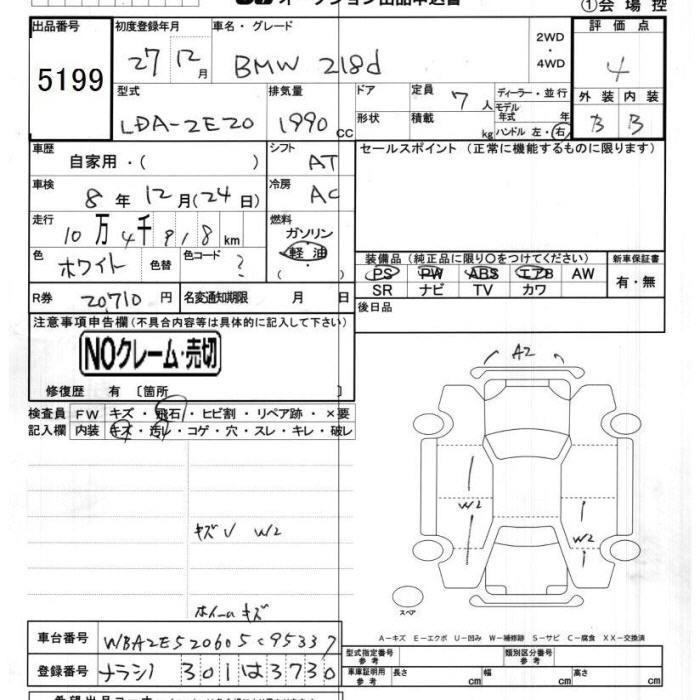 オークション出品申込書
①会場控
出品番号 初度登録年月 車名・グレード 2WD・4WD 評価点
5199 27 12月 BMW 218d 4
型式 排気量 ドア 定員 7人 ディーラー・並行 外装 内装
LDA-2E20 1990cc 形状 積載 kg モデル年式 年 B B
ハンドル 左・右
車歴 シフト セールスポイント (正常に機能するものに限ります)
自家用・( ) AT
車検 冷房
8年12月(24日) AC
走行 燃料
10万4千918km ガソリン
軽油
( )
色 ホワイト 色替 色コード ? 装備品(純正品に限り○をつけてください) 新車保証書
PS PW ABS エアB AW 有・無
SR ナビ TV カワ
R券 20,710円 名変通知期限 月 日 後日品
注意事項申告欄(不具合内容等は具体的に記入して下さい)
NOクレーム・売切
A2
修復歴 有 〔箇所 〕
検査員 FW キズ・飛石・ヒビ割・リペア跡・×要
記入欄 内装 キズ・汚レ・コゲ・穴・スレ・キレ・破レ
W2 W2
キズV W2
ホイールキズ
スペア
A-キズ E-エクボ U-凹み W-補修跡 S-サビ C-腐食 XX-交換済
車台番号
登録番号 ナラシ 301 は 3730
型式指定番号 参考 類別区分番号 参考
車庫証明用 参考 長さ cm 幅 cm 高さ cm